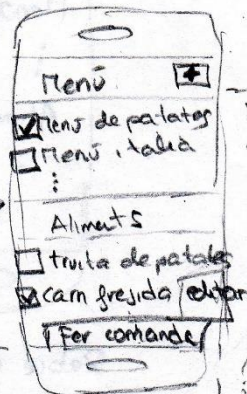 Menú +
Menú de patates
Menú italià
⋮
Aliments
truita de patates
carn fregida editar
Fer comanda